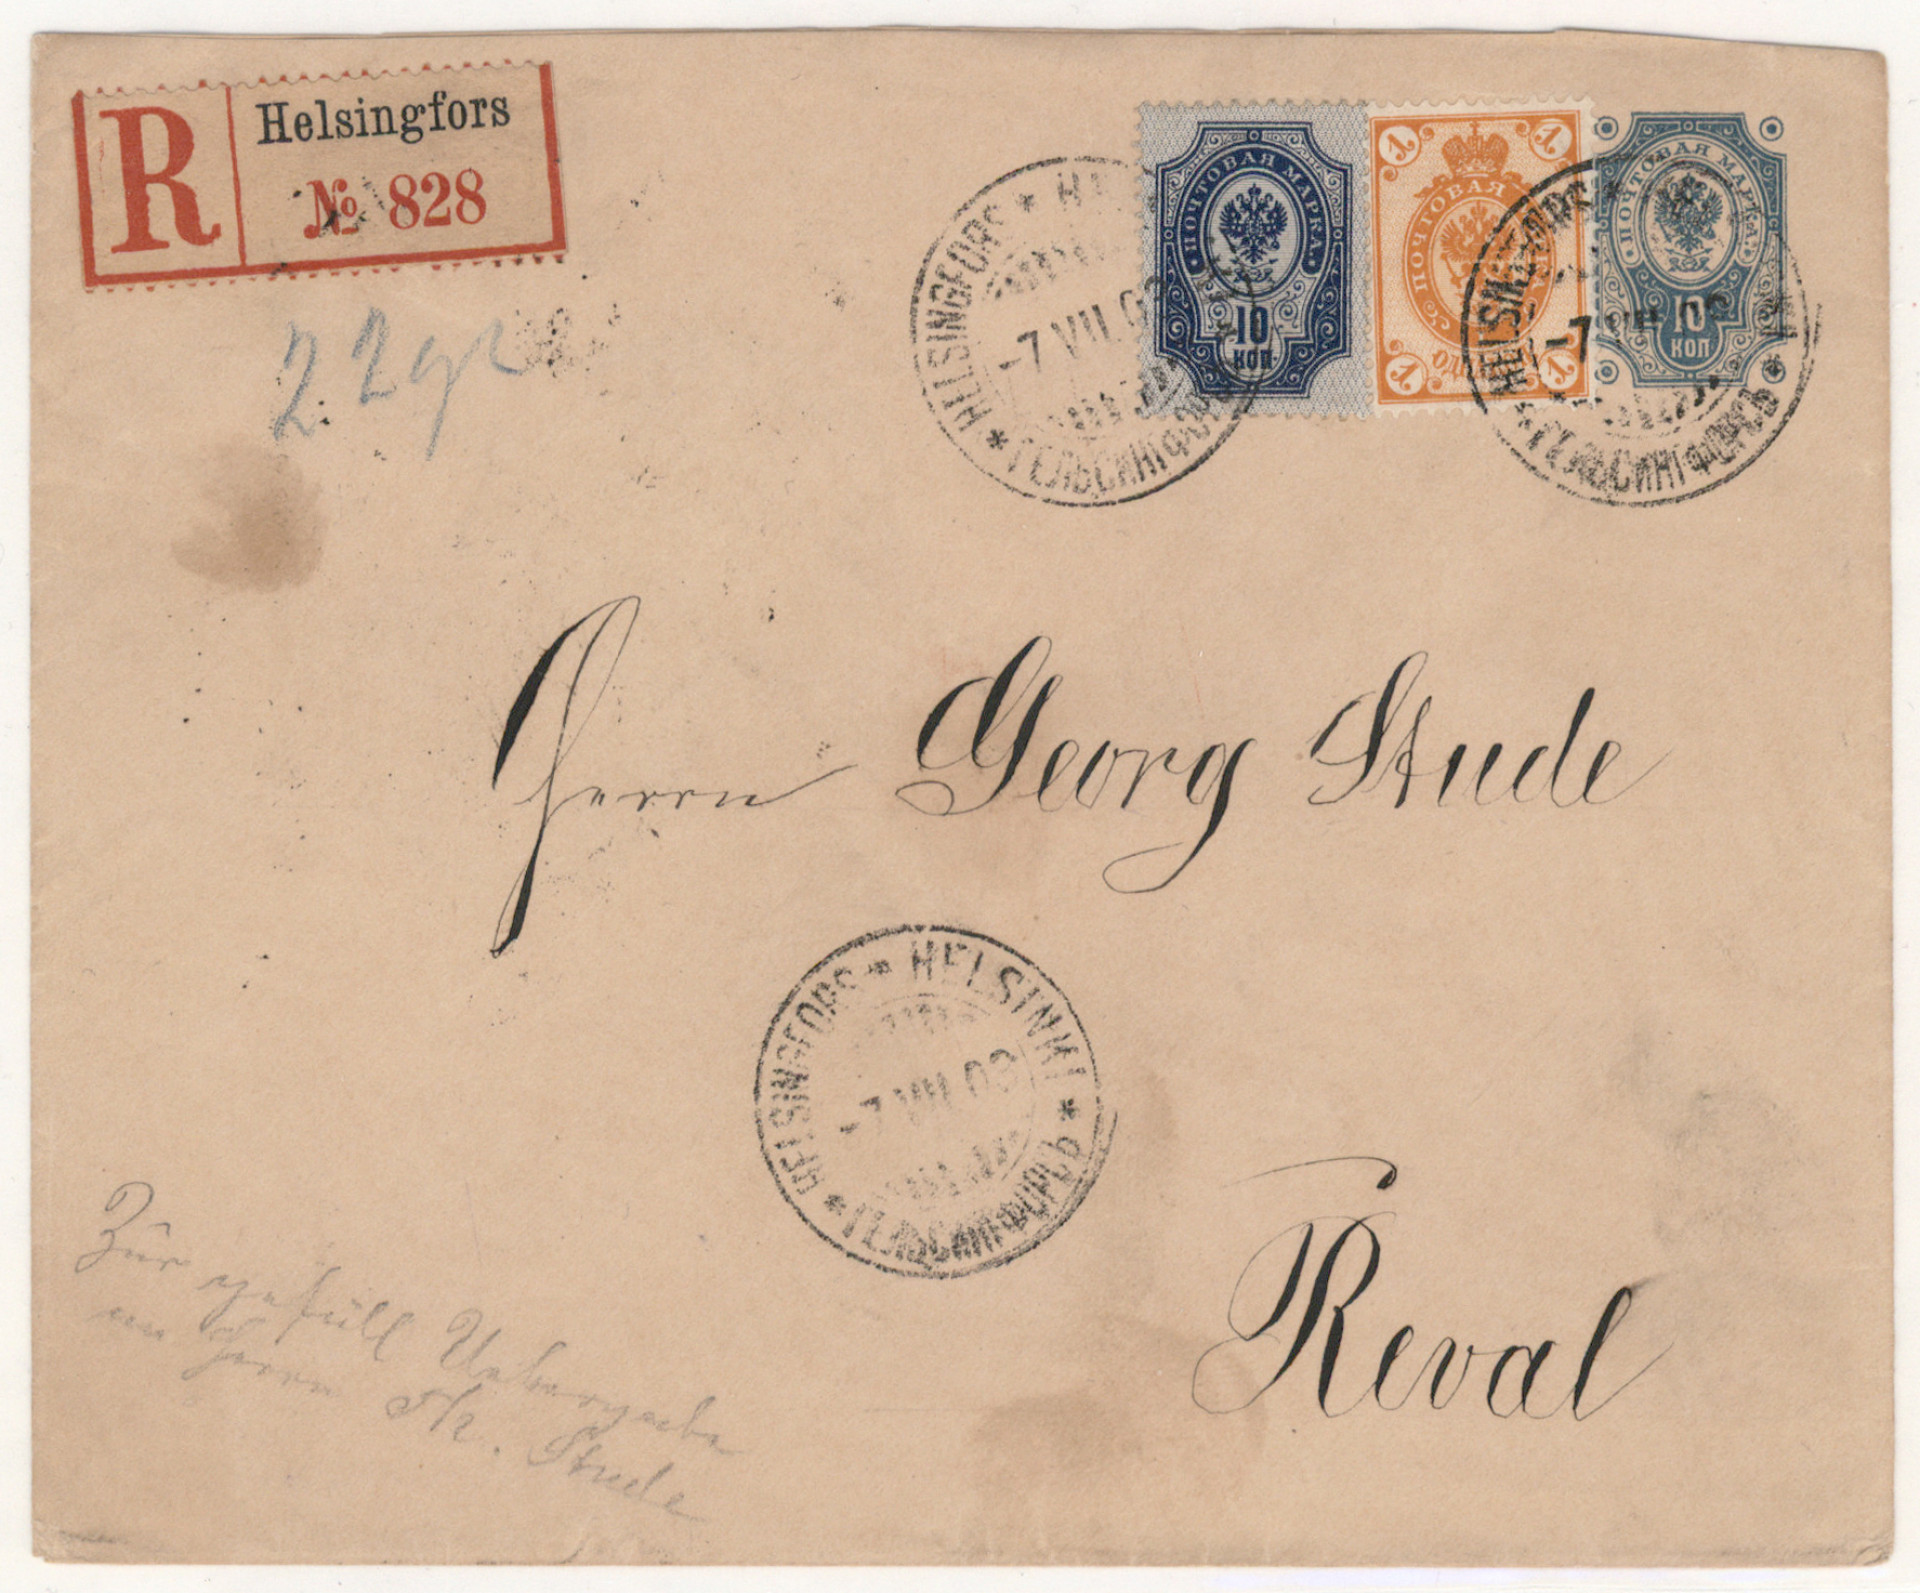 R Helsingfors
№ 828
22gr
ПОЧТОВАЯ МАРКА.
10
КОП.
1 1
ПОЧТОВАЯ МАРКА
1 1
ПОЧТОВАЯ МАРКА.
10
КОП
HELSINGFORS * H
-7 VII 03
* ГЕЛЬСИНГФОРСЪ
HELSINGFORS *
-7 VII 03
* ГЕЛЬСИНГФОРСЪ *
Herrn Georg Stude
HELSINGFORS * HELSINKI *
-7 VII 03
* ГЕЛЬСИНГФОРСЪ
Reval
Zur gefäll Uebergabe
an Herrn Stude